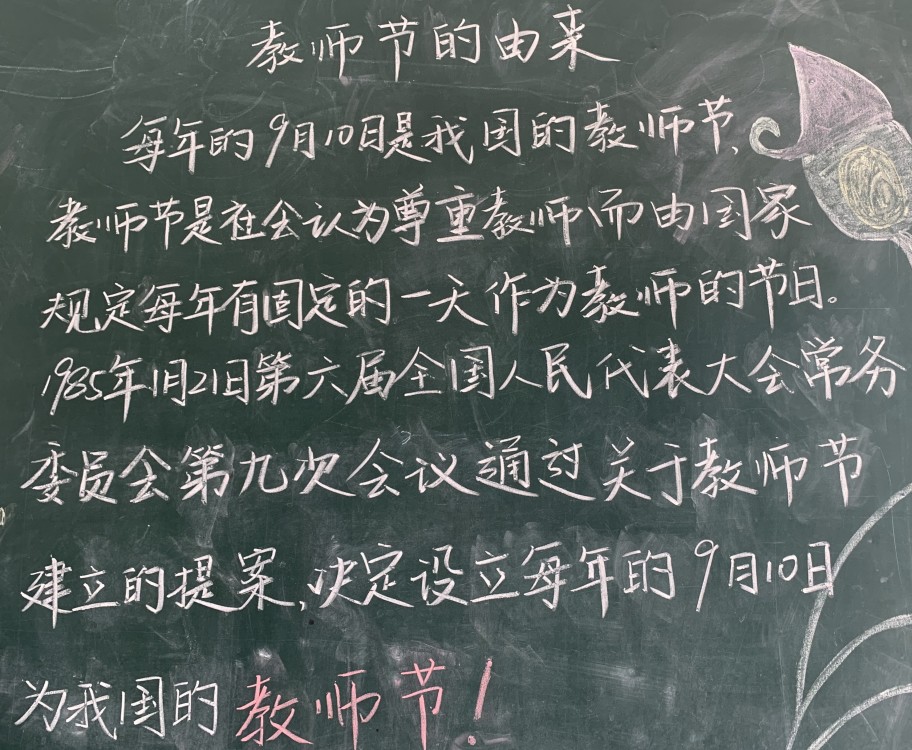 教师节的由来
每年的9月10日是我国的教师节,
教师节是社会认为尊重教师,而由国家
规定每年有固定的一天作为教师的节日。
1985年1月21日第六届全国人民代表大会常务
委员会第九次会议通过关于教师节
建立的提案,决定设立每年的9月10日
为我国的教师节!